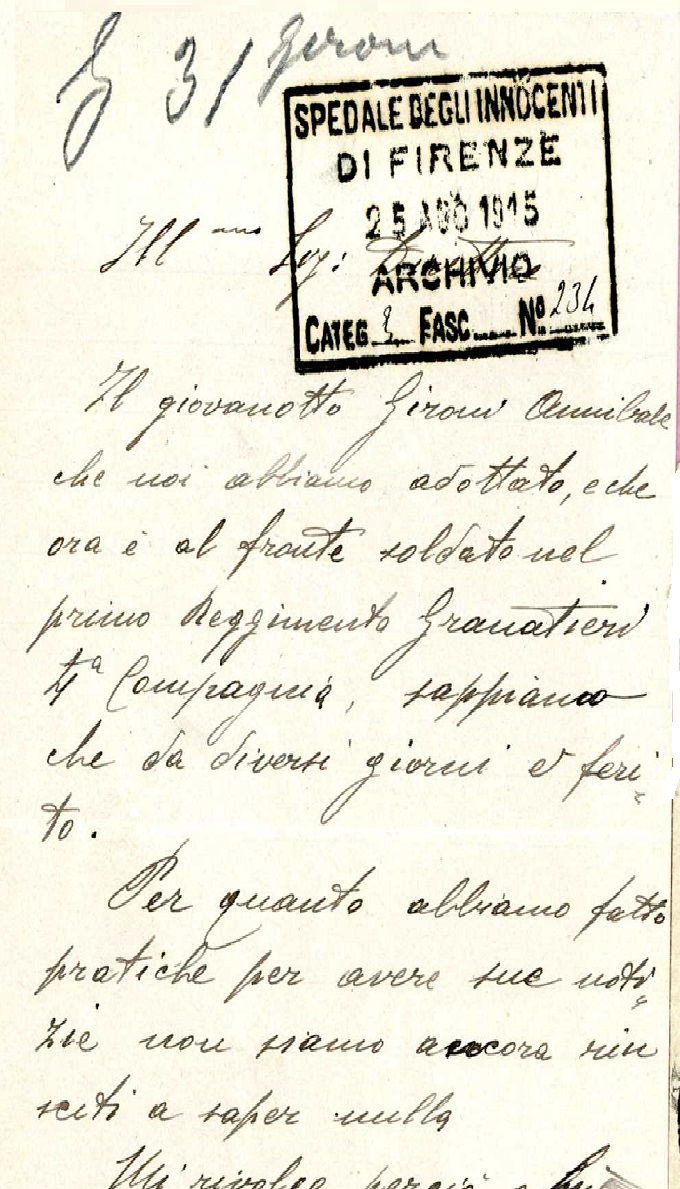 31 Gironi
SPEDALE DEGLI INNOCENTI
DI FIRENZE
25 AGO 1915
ARCHIVIO
CATEG. 3 FASC. Nº 234
Ill mo Sig: Direttore
Il giovanotto Gironi Annibale
che noi abbiamo adottato, e che
ora è al fronte soldato nel
primo Reggimento Granatieri
4ª Compagnia, sappiamo
che da diversi giorni è feri=
to.
Per quanto abbiamo fatto
pratiche per avere sue noti=
zie non siamo ancora riu
sciti a saper nulla
Mi rivolgo perciò a